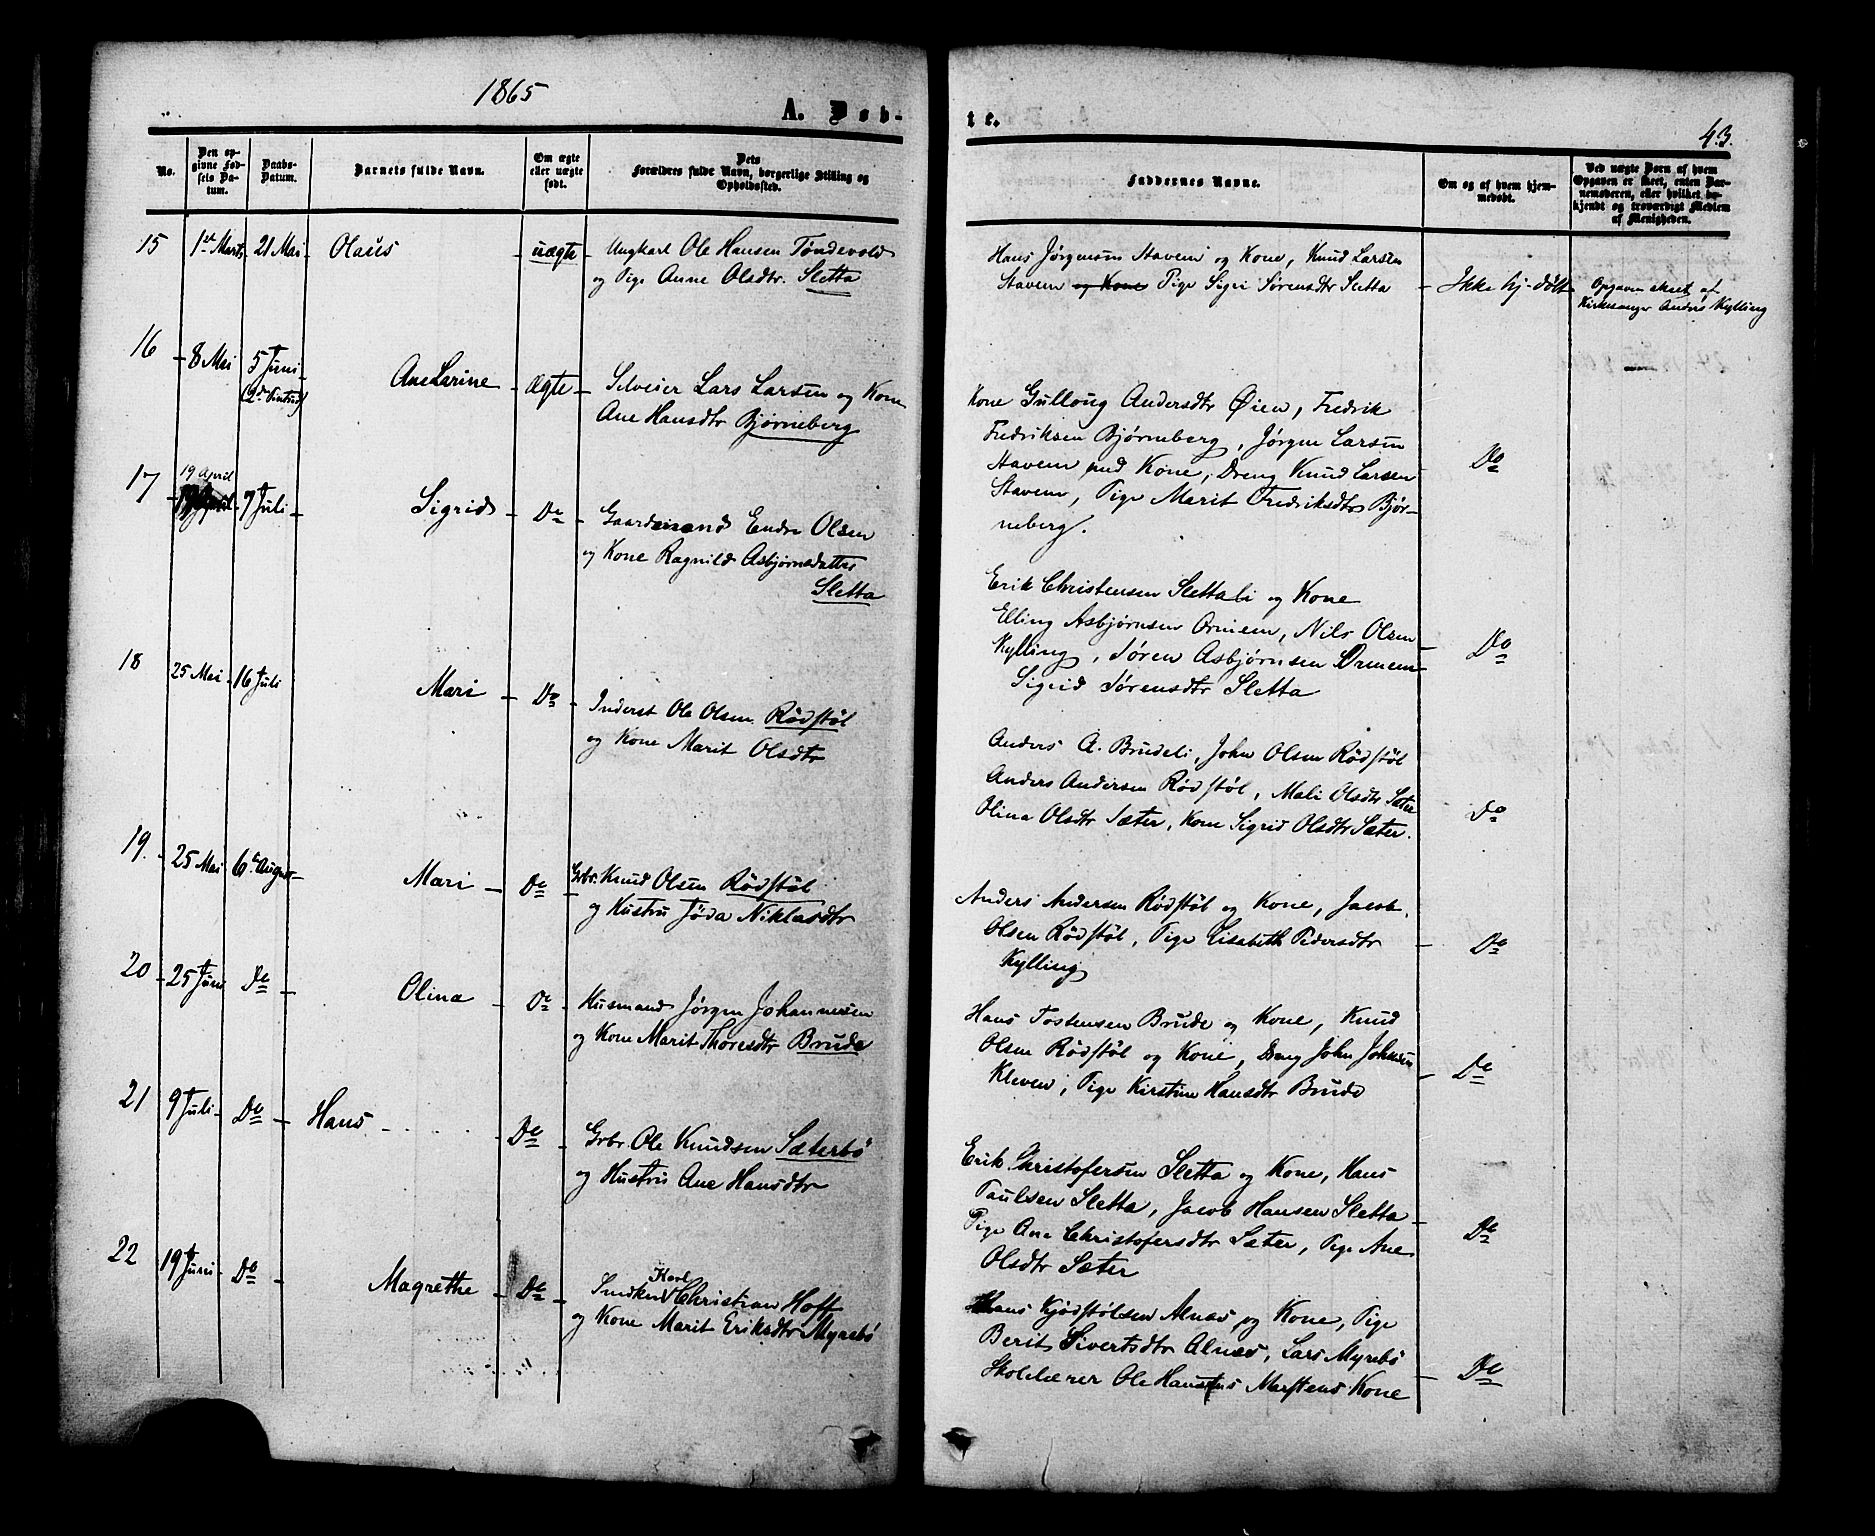 1865
A. Døb-
te.
43.
No.
Den op-
givne Fød-
sels Da-
tum.
Daabs-
Datum.
Barnets fulde Navn.
Om ægte
eller uægte
født.
Dets
Forældres fulde Navn, borgerlige Stilling og
Opholdssted.
Faddernes Navne.
Om og af hvem hjem-
medøbt.
Ved uægte Børn af hvem
Opgaven er skeet, enten Bar-
nemoderen, eller hvilket be-
kjendt og troværdigt Medlem
af Menigheden.
15 1ste Marts 21 Mai Olaus uægte
Ungkarl Ole Hansen Tøndevold
og Pige Anne Olsdtr. Sletta
Hans Jørgensen Stavem og Kone, Knud Larsen
Stavem og Kone Pige Sigri Sørensdtr Sletta
Ikke hj-døbt
Opgaven skeet af
Kirkesanger Anders Kylling
16 8 Mai 5 Juni
(2den Pintsed)
Ane Larine Ægte
Selveier Lars Larsen og Kone
Ane Hansdtr Bjørneberg
Kone Gullaug Andersdtr Øien, Fredrik
Fredriksen Bjørneberg, Jørgen Larsen
Stavem med Kone, Dreng Knud Larsen
Stavem, Pige Marit Fredriksdtr Bjør-
neberg.
Do
17 19 April 7 Juli Sigrid Do
Gaardmand Endre Olsen
og Kone Ragnild Asbjørnsdatter
Sletta
Erik Christensen Slettali og Kone
Elling Asbjørnsen Ormem, Nils Olsen
Kylling, Søren Asbjørnsen Ormem
Sigrid Sørensdtr Sletta
Do
18 25 Mai 16 Juli Mari Do
Inderst Ole Olsen Rødstøl
og Kone Marit Olsdtr
Anders A. Brudeli, John Olsen Rødstøl
Anders Andersen Rødstøl, Mali Olsdtr Sæter
Olina Olsdtr Sæter, Kone Sigrid Olsdtr Sæter.
Do
19. 25 Mai 6te August Mari Do
Grbr. Knud Olsen Rødstøl
og Hustru Jøda Niklasdtr
Anders Andersen Rødstøl og Kone, Jacob
Olsen Rødstøl, Pige Lisabeth Pedersdtr
Kylling
Do
20 25 Juni Do Olina Do
Husmand Jørgen Johannesen
og Kone Marit Thoresdtr Brude
Hans Tostensen Brude og Kone, Knud
Olsen Rødstøl og Kone, Dreng John Johnsen
Kleven, Pige Kirstine Hansdtr Brude
Do
21 9 Juli Do Hans Do
Grbr. Ole Knudsen Sæterbø
og Hustru Ane Hansdtr
Erik Christofersen Sletta og Kone, Hans
Paulsen Sletta, Jacob Hansen Sletta
Pige Ane Christofersdtr Sæter, Pige Ane
Olsdtr Sæter
Do
22 19 Juni Do Magrethe Do
Karl
Snedker Christian Hoff
og Kone Marit Eriksdtr Myrebø
Hans Kjøstølsen Alnæs og Kone, Pige
Berit Sivertsdtr Alnæs, Lars Myrebø
Skolelærer Ole Marstens Kone
Do